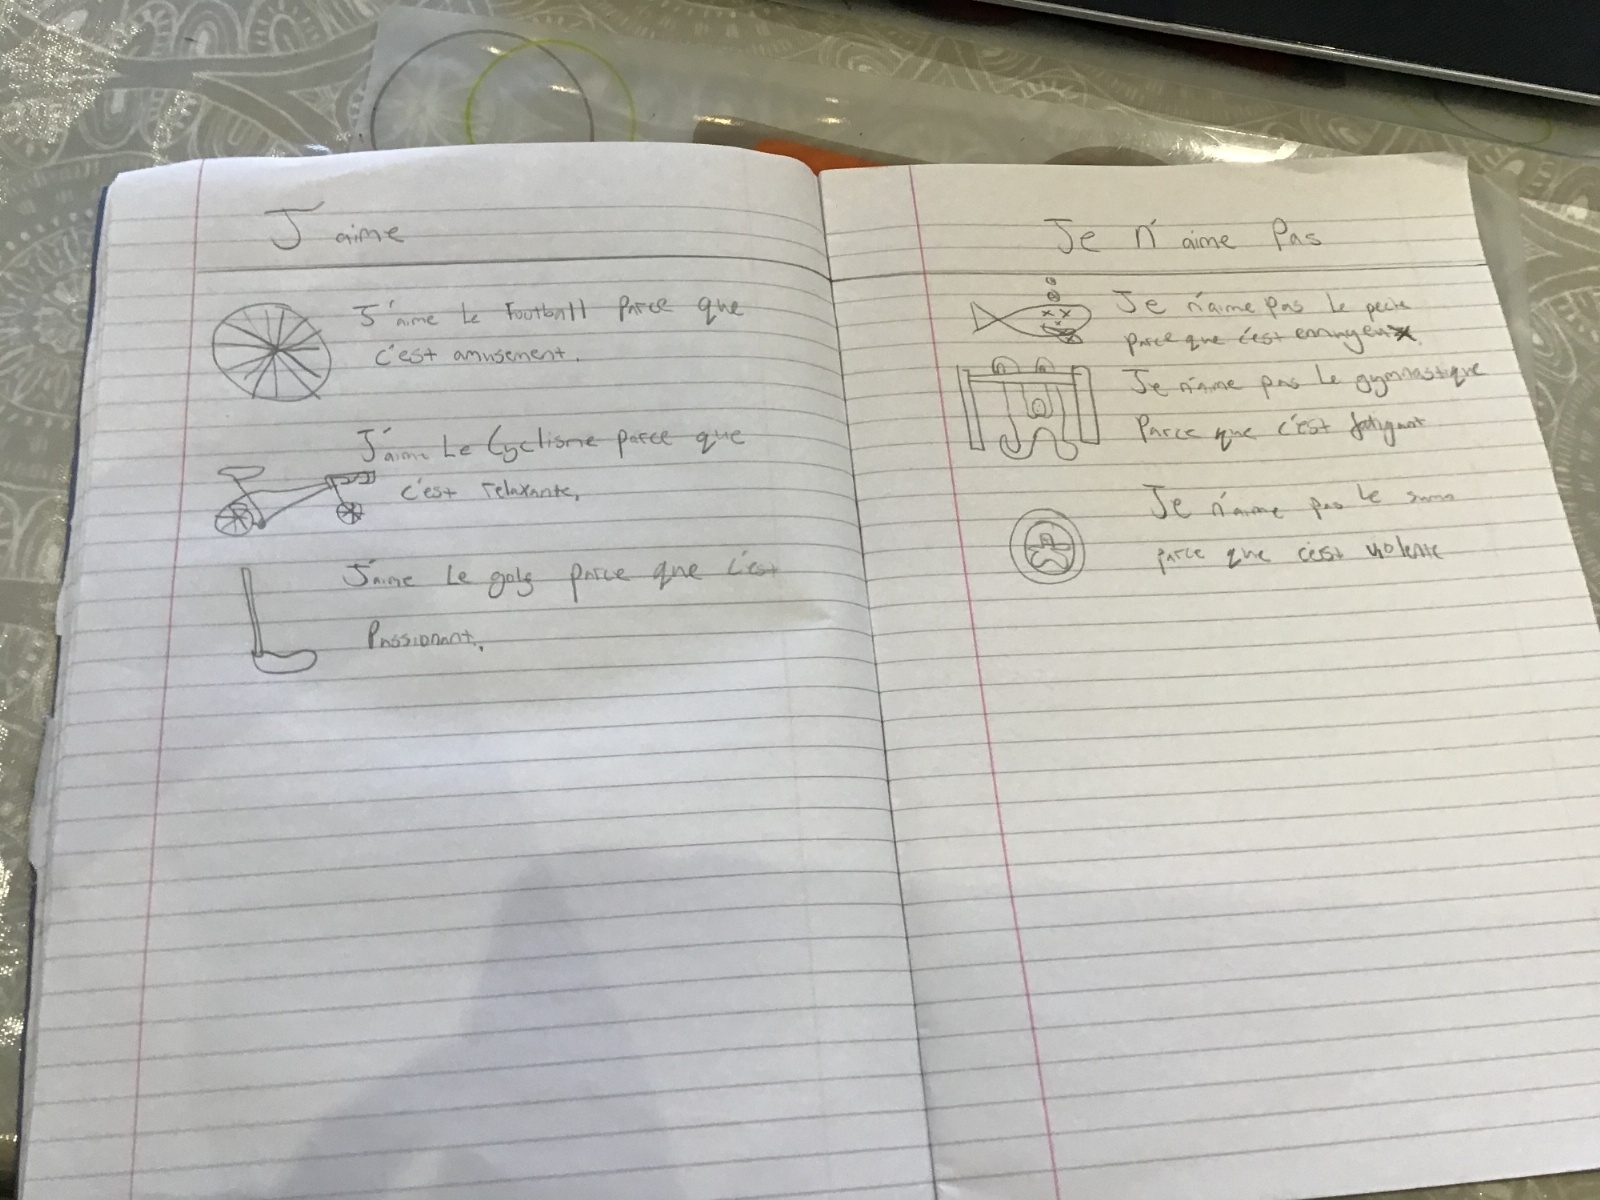 J'aime
J'aime le Football parce que
c'est amusement.
J'aime Le Cyclisme parce que
c'est relaxante.
J'aime Le golf parce que c'est
Passionant.
Je n'aime Pas
Je n'aime pas le peche
parce que c'est ennuyeux.
Je n'aime pas le gymnastique
Parce que c'est fatigant
Je n'aime pas le sumo
parce que c'est violente